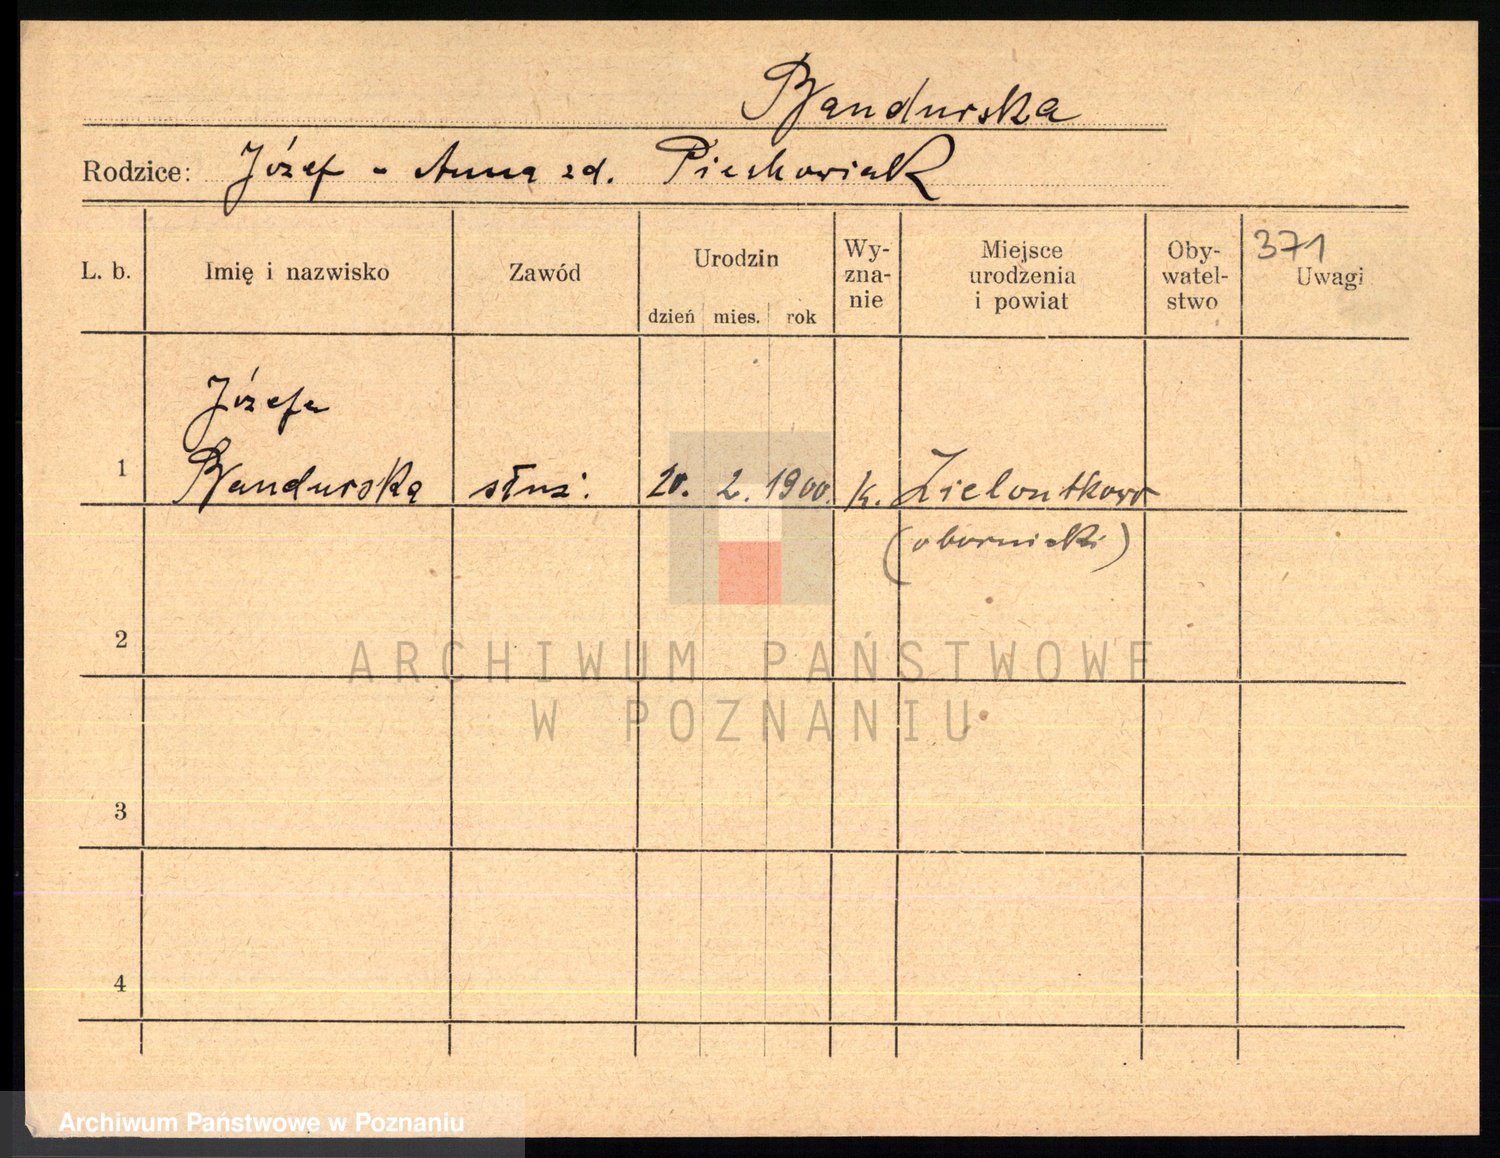 Bandurska
Rodzice: Józef - Anna zd. Piechowiak
L. b. Imię i nazwisko Zawód Urodzin dzień mies. rok Wy-zna-nie Miejsce urodzenia i powiat Oby-watel-stwo 371 Uwagi
Józefa
1 Bandurska służ. 20. 2. 1900. k. Zielontkowo
(obornicki)
2
ARCHIWUM PAŃSTWOWE
W POZNANIU
3
4
Archiwum Państwowe w Poznaniu